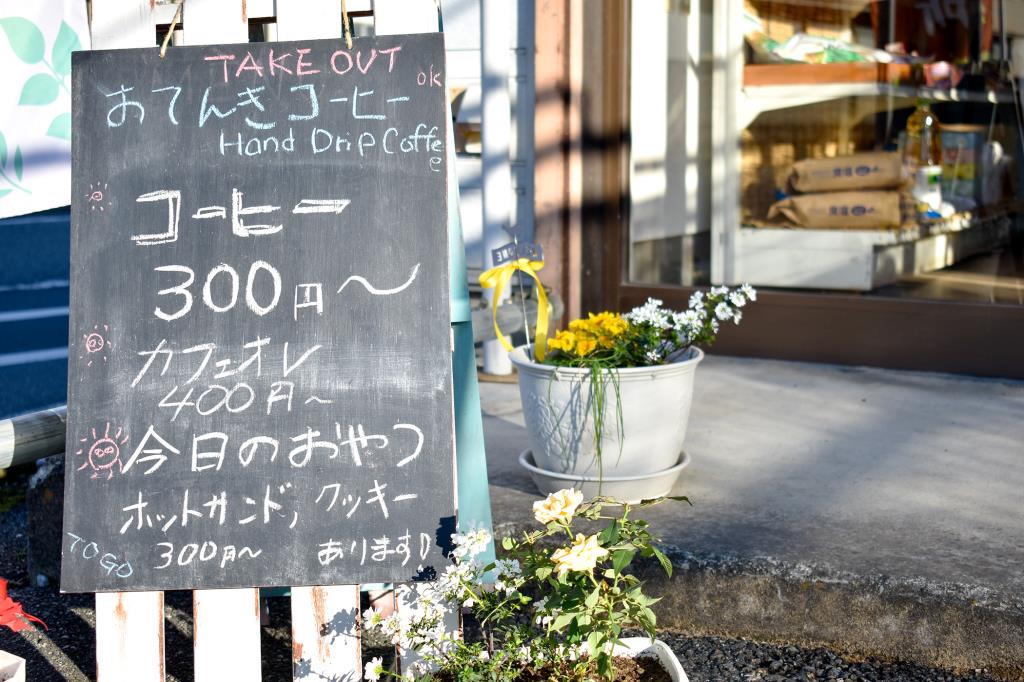 TAKE OUT
ok
おてんきコーヒー
Hand Drip Coffee
コーヒー
300円～
カフェオレ
400円～
今日のおやつ
ホットサンド, クッキー
300円～ あります♪
TO GO